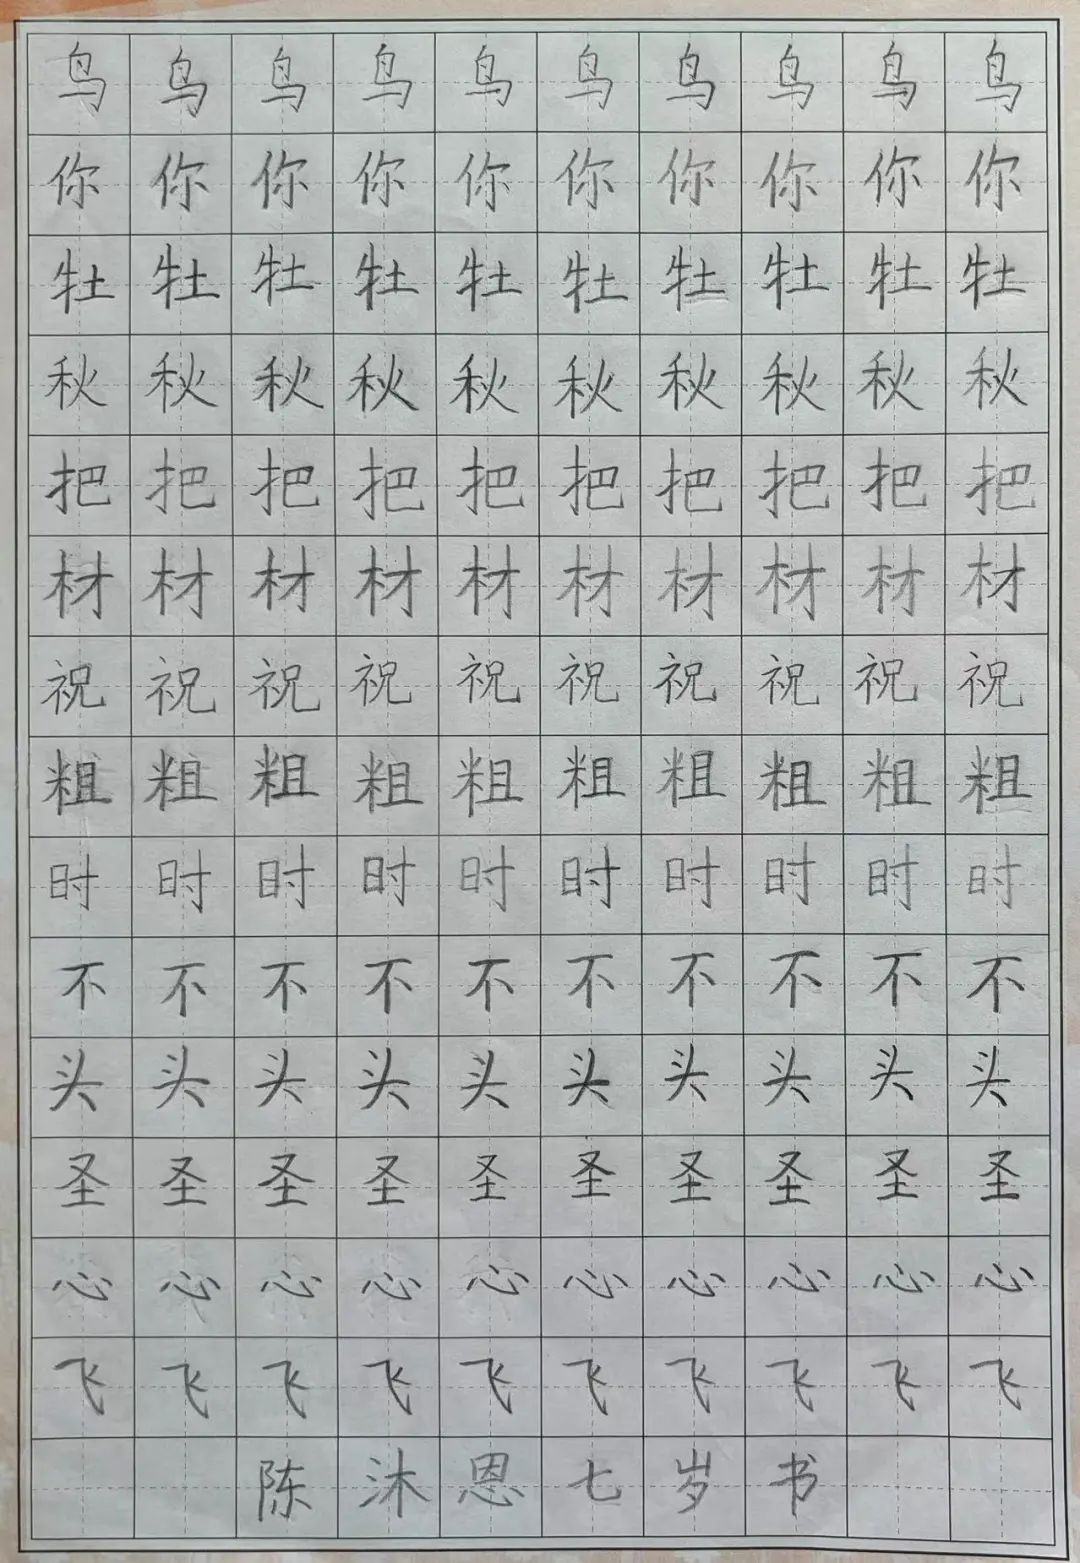 鸟鸟鸟鸟鸟鸟鸟鸟鸟鸟
你你你你你你你你你你
牡牡牡牡牡牡牡牡牡牡
秋秋秋秋秋秋秋秋秋秋
把把把把把把把把把把
材材材材材材材材材材
祝祝祝祝祝祝祝祝祝祝
粗粗粗粗粗粗粗粗粗粗
时时时时时时时时时时
不不不不不不不不不不
头头头头头头头头头头
圣圣圣圣圣圣圣圣圣圣
心心心心心心心心心心
飞飞飞飞飞飞飞飞飞飞
陈沐恩七岁书